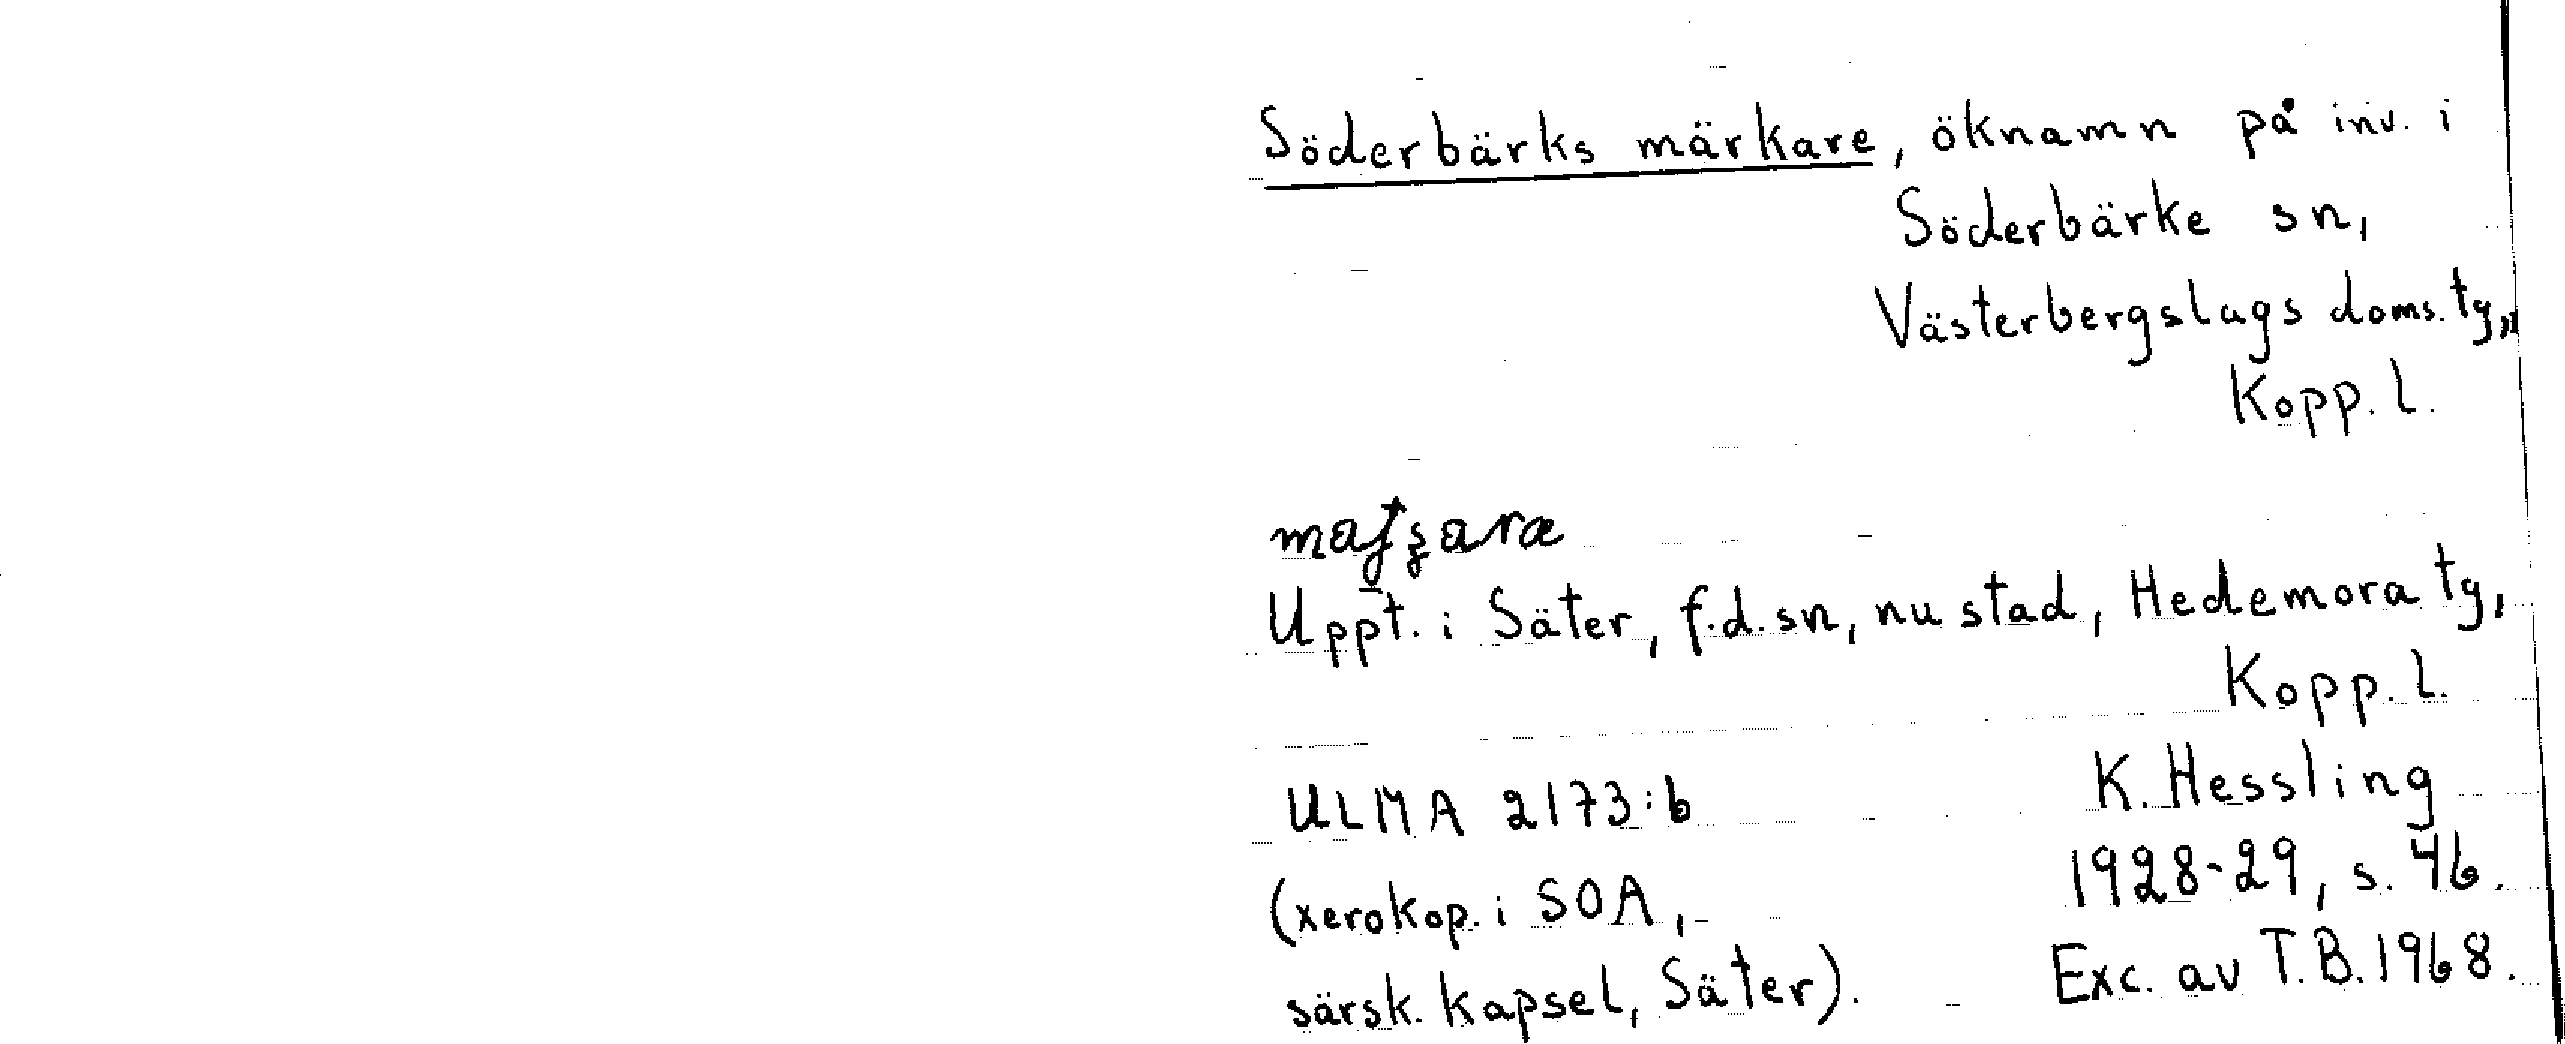 Söderbärks märkare, öknamn på inv. i
Söderbärke sn,
Västerbergslags doms. tg,
Kopp. l.
Uppt. i Säter, f.d. sn, nu stad, Hedemora tg,
Kopp. l.
ULMA 2173:b
K. Hessling
1928-29, s. 46.
(xerokop. i SOA,
särsk. kapsel, Säter).
Exc. av T.B. 1968.